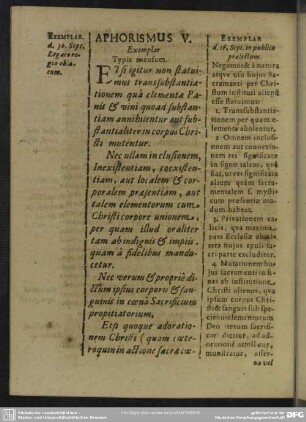 EXEMPLAR
d. 30. Sept.
Legato re-
gio obla-
tum.
APHORISMUS V.
Exemplar
Typis excusum.
ETsi igitur non statui-
mus transsubstantia-
tionem quâ elementa Pa-
nis & vini quoad substan-
tiam annihilentur aut sub-
stantialiter in corpus Chri-
sti mutentur.
Nec ullam inclusionem,
Inexistentiam, coexisten-
tiam, aut localem & cor-
poralem præsentiam, aut
talem elementorum cum
Christi corpore unionem,
per quam illud oraliter
tam ab indignis & impiis,
quam à fidelibus mandu-
cetur.
Nec verum & propriè di-
ctum ipsius corporis & san-
guinis in cœnâ Sacrificium
propitiatorium.
Etsi quoque adoratio-
nem Christi (quam cæte-
roquin in actione sacræ cœ-
EXEMPLAR
d. 16. Sept. in publico
prælectum.
Negamus & à natura
atque usu hujus Sacra-
menti per Chri-
stum instituti alienas
esse statuimus:
1. Transsubstantia-
tionem per quam e-
lementa abolentur.
2 Omnem inclusio-
nem aut connexio-
nem rei significatæ
in signo talem, quâ
fiat, ut res significata
aliam quàm Sacra-
mentalem s. mysti-
cum præsentiæ mo-
dum habeat.
3. Privationem ca-
licis, quâ maxima
pars Ecclesiæ altera
hujus epuli sa-
cri parte excluditur.
4 Mutationem hu-
jus sacramenti in fi-
nes ab institutione
Christi alienos, quâ
ipsum corpus Chri-
sti & sanguis sub spe-
ciebus elementorum
Deo iterum sacrifi-
cari dicitur, ad ado-
rationem attollitur,
monstratur, asser-
na vel